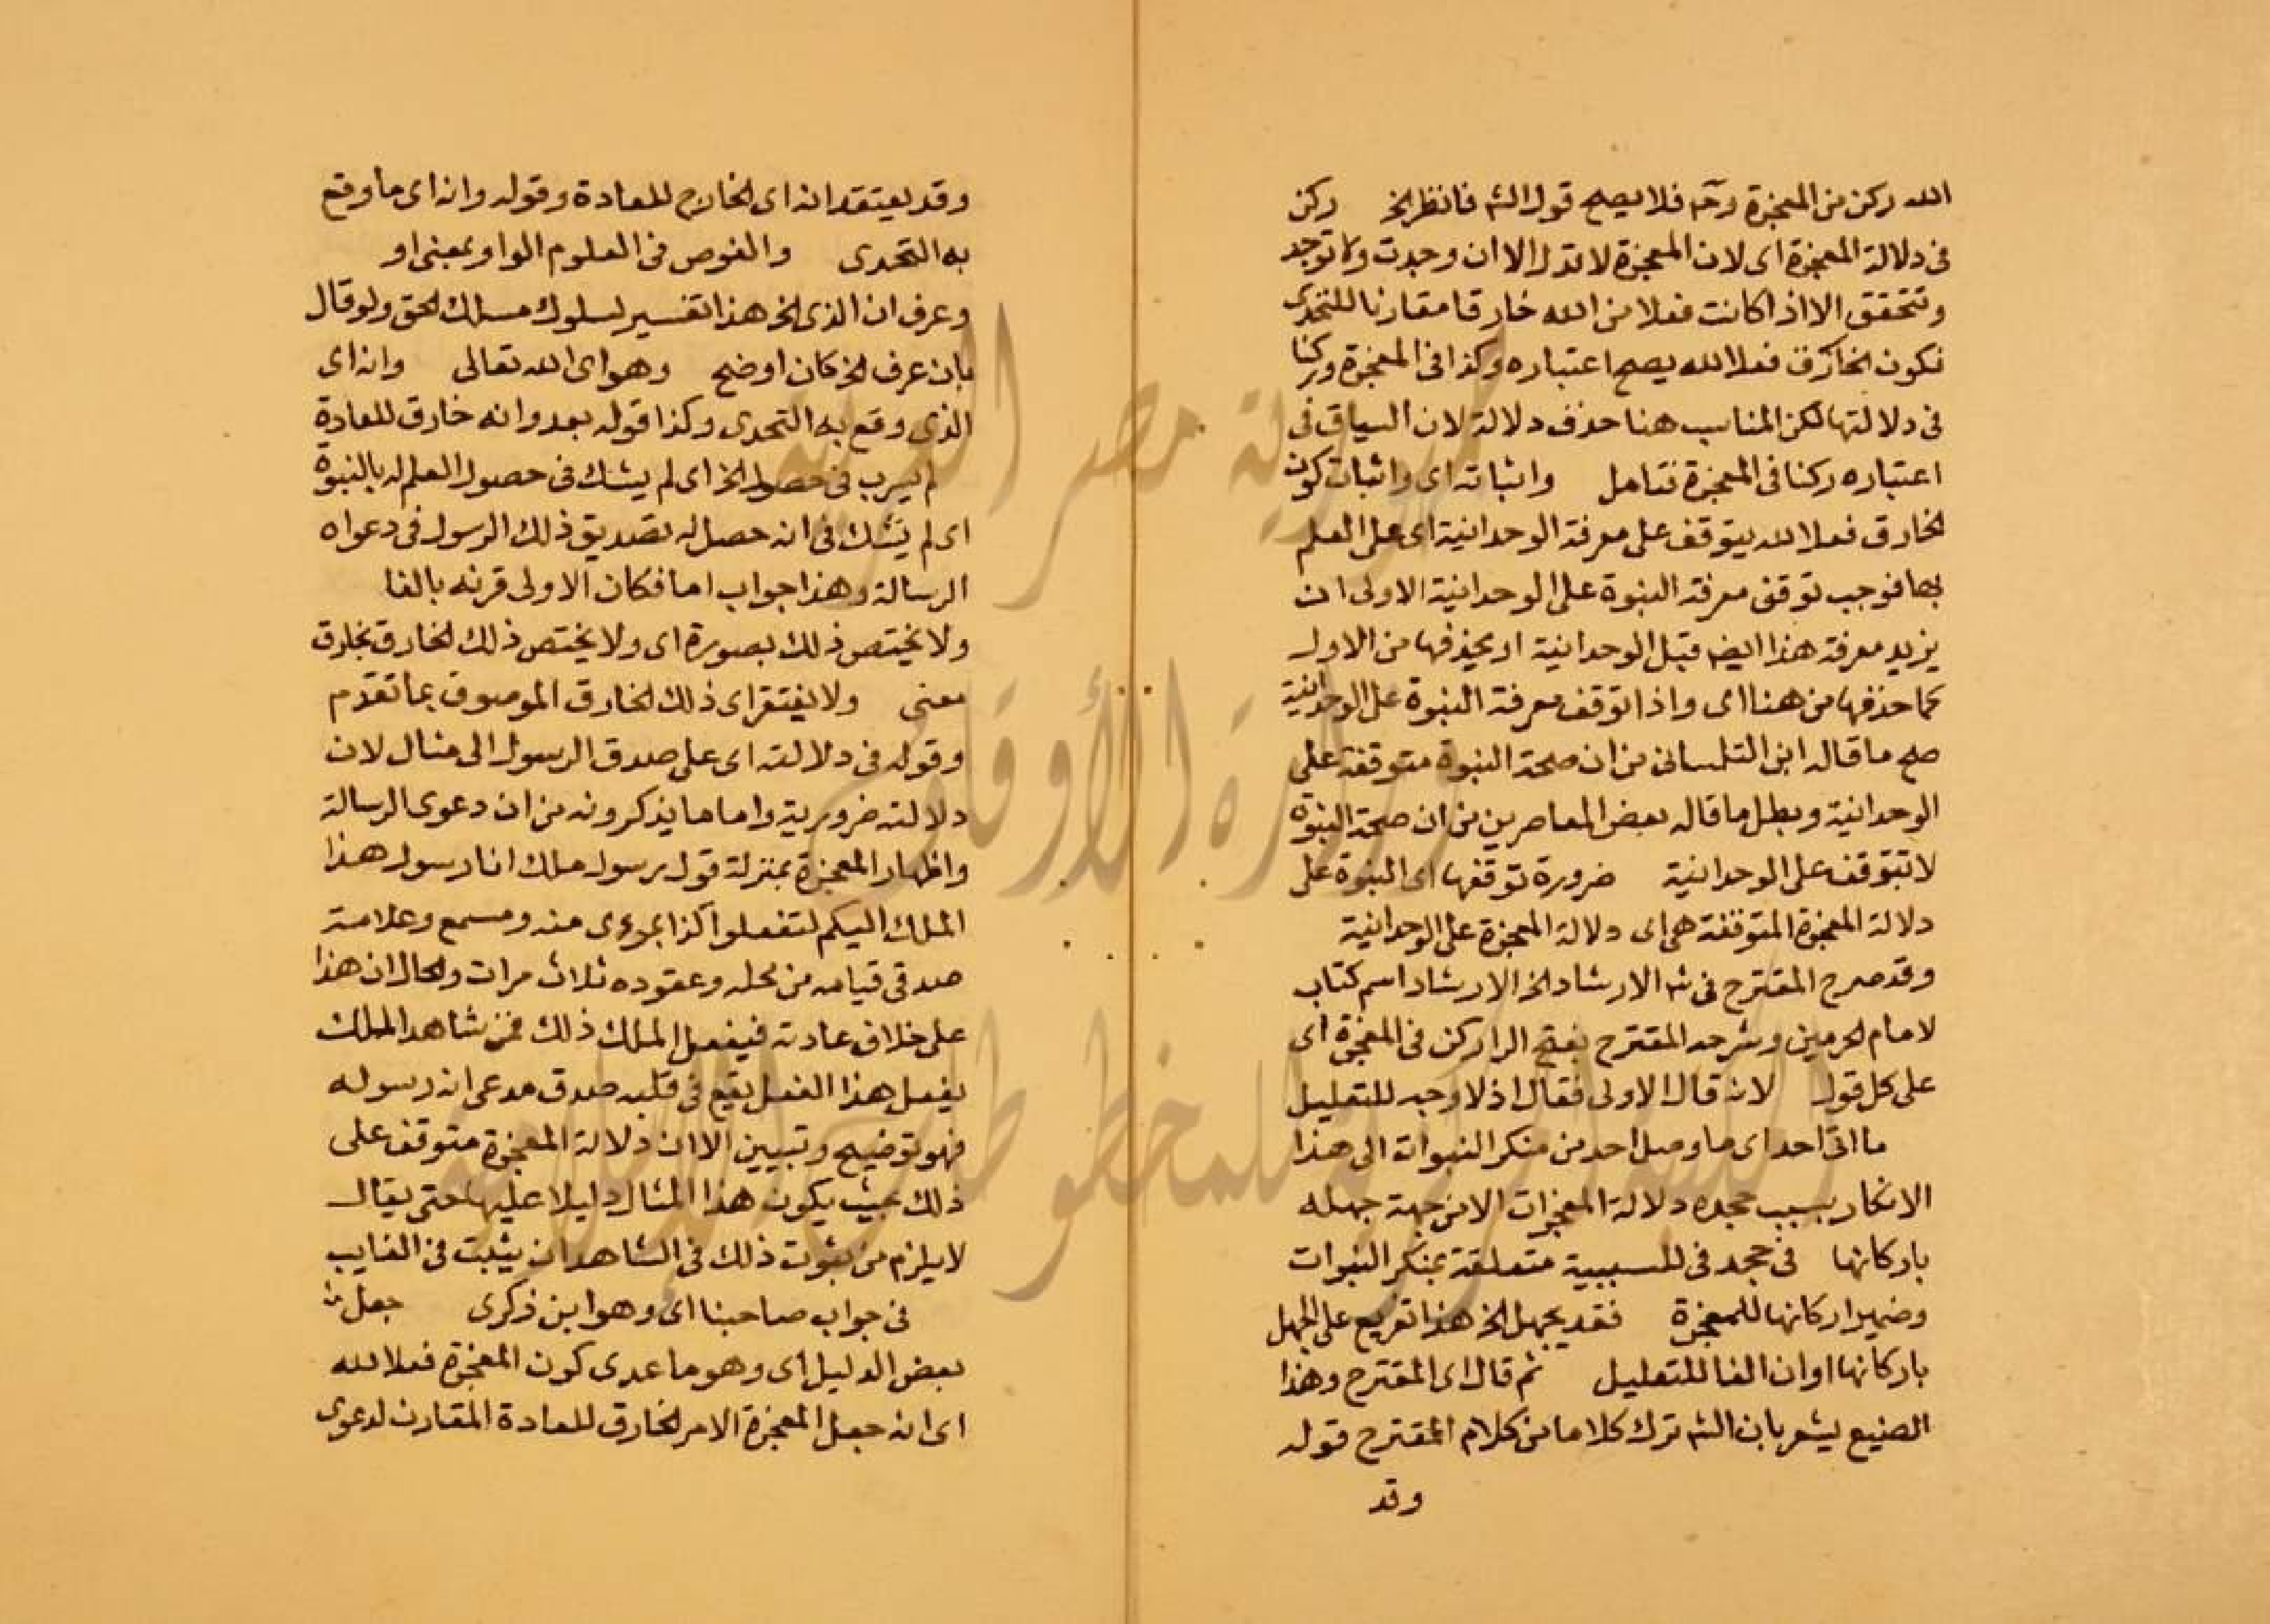 الله ركن من المعجزة وح فلا يصح قول الش فانظر الخ ركن
فى دلالة المعجزة اى لان المعجزة لا تدل الا ان وجدت ولا توجد
وتتحقق الا اذا كانت فعلا من الله خارقا مقارنا للتحدى
فكون الخارق فعلا لله يصح اعتباره ركنا فى المعجزة وركنا
فى دلالتها لكن المناسب هنا حذف دلالة لان السياق فى
اعتباره ركنا فى المعجزة فتامل واثباته اى واثبات كون
الخارق فعلا لله يتوقف على معرفة الوحدانية اى على العلم
بها فوجب توقف معرفة النبوة على الوحدانية الاولى ان
يزيد معرفة هذا ايضا قبل الوحدانية او يحذفها من الاول
كما حذفها من هنا اى واذا توقف معرفة النبوة على الوحدانية
صح ما قاله ابن التلمسانى من ان صحة النبوة متوقفة على
الوحدانية وبطل ما قاله بعض المعاصرين من ان صحة النبوة
لا تتوقف على الوحدانية ضرورة توقفها اى النبوة على
دلالة المعجزة المتوقفة هى اى دلالة المعجزة على الوحدانية
وقد صرح المقترح فى ش الارشاد الخ الارشاد اسم كتاب
لامام الحرمين وشرحه المقترح بفتح الرا ركن فى المعجزة اى
على كل قول لانه قال الاولى فقال اذ لا وجه للتعليل
ما اتى احد اى ما وصل احد من منكر النبوات الى هذا
الانكار بسبب جحده دلالة المعجزات الا من جهة جهله
باركانها فى جحد فى للسببية متعلقة بمنكر النبوات
وضمير اركانها للمعجزة فقد يجهل الخ هذا تفريع على الجهل
باركانها او ان الفا للتعليل ثم قال اى المقترح وهذا
الصنيع يشعر بان الش ترك كلاما من كلام المقترح قوله
وقد
وقد يعتقد انه اى الخارج للعادة وقوله وانه اى ما وقع
به التحدى والغوص فى العلوم الواو بمعنى او
وعرف ان الذى الخ هذا تفسير لسلوك مسلك الحق ولو قال
بان عرف الخ كان اوضح وهو اى الله تعالى وانه اى
الذى وقع به التحدى وكذا قوله بعد وانه خارق للعادة
لم يسرب فى حصول الخ اى لم يشك فى حصول العلم له بالنبوة
اى لم يشك فى انه حصل له تصديق ذلك الرسول فى دعواه
الرسالة وهذا جواب اما فكان الاولى قرنه بالفا
ولا يختص ذلك بصورة اى ولا يختص ذلك الخارق بخارق
معنى ولا يفتقر اى ذلك الخارق الموصوف بما تقدم
وقوله فى دلالته اى على صدق الرسول الى مثال لان
دلالته ضرورية واما ما يذكرونه من ان دعوى الرسالة
واظهار المعجزة بمنزلة قول رسول ملك انا رسول هذا
الملك اليكم لتفعلوا كذا بمروى منه ومسمع وعلامة
صدقى قيامه من محله وعقوده ثلاث مرات والحال ان هذا
على خلاف عادته فيفعل الملك ذلك فمن شاهد الملك
يفعل هذا الفعل يقع فى قلبه صدق مدعى انه رسوله
فهو توضيح وتبيين لا ان دلالة المعجزة متوقف على
ذلك بحيث يكون هذا المثال دليلا عليها حتى يقال
لا يلزم من ثبوت ذلك فى الشاهد ان يثبت فى الغايب
فى جواب صاحبنا اى وهو ابن ذكرى جعل
بعض الدليل اى وهو ما عدى كون المعجزة فعلا لله
اى انه جعل المعجزة الامر الخارق للعادة المقارن لدعوى